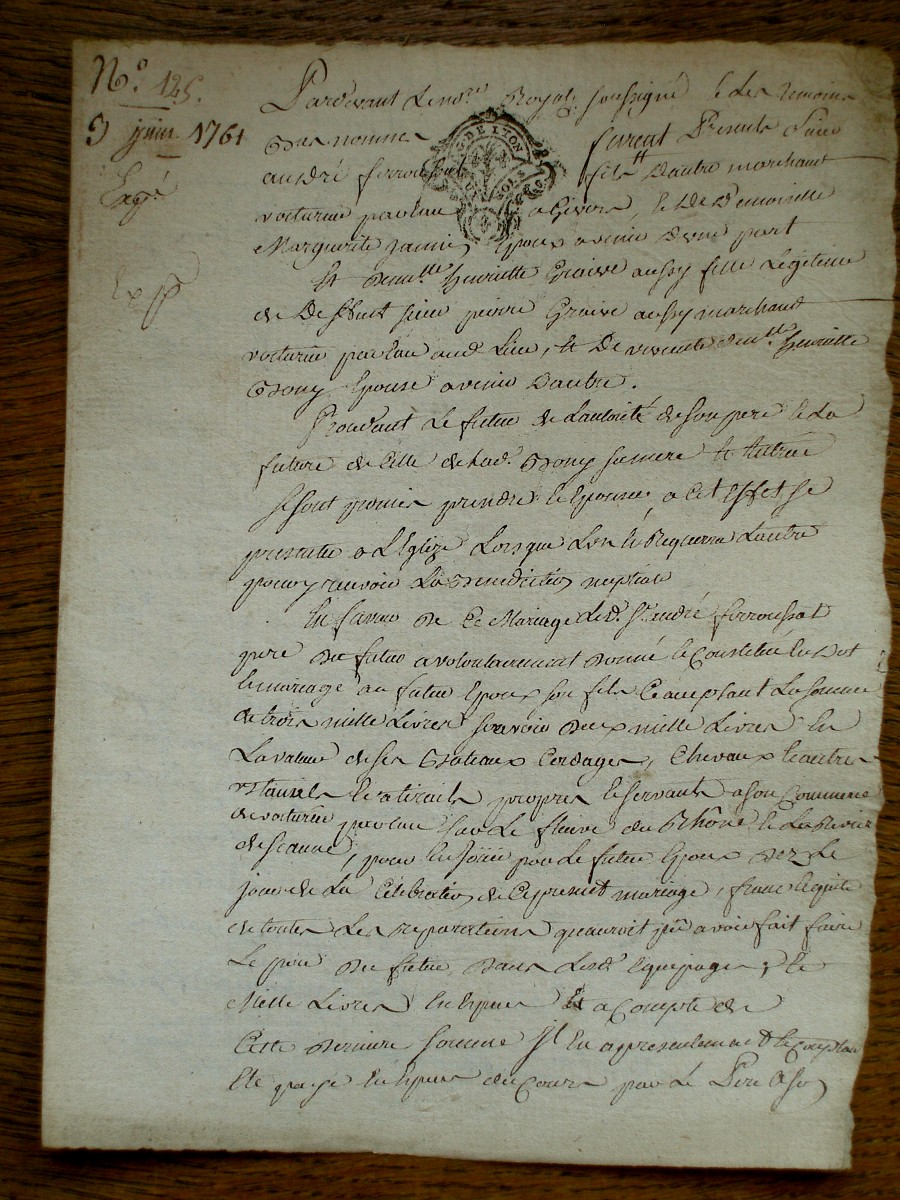 N.° 125.
9 juin 1761
Exp
Pardevant Le no.re Royal soussigné et Les temoins
Bas nommes furent Presents Sieur
G. DE LYON
andré ferroussat fils d'autre marchand
voiturier par eau a Givors, et de Demoiselle
Marguerite Jamin Epoux avenir d'une part
Et Dem.lle henriette Graive aussy fille Légitime
de Deffunt sieur pierre Graive aussy marchand
voiturier par eau aud. Lieu, et De vivente dem.lle henriette
Bony Epouse avenir D'autre.
Procedant Le futur de L'autorité de son pere et La
future de Celle de lad. Bony sa mere
Se sont promis prendre et Epouser, a Cet Effet se
presenter a L'Eglize Lorsque L'un En Requerra L'autre
pour y recevoir La Benediction nuptiale
En faveur De Ce Mariage Led. S.r andré ferroussat
pere Du futur a volontairement Donné et Constitué En Dot
de mariage au futur Epoux son fils Ce acceptant La somme
de trois mille Livres scavoir Deux mille Livres En
La valeur de ses Bateaux Cordages, Chevaux et autres
ustanciles et atirails propres et servants a son Commerce
de voiturier par eau sur Le fleuve du Rhône et La Riviere
de Seaune, pour En Joüir par Le futur Epoux Dez Le
jour de La Célébration de Ce present mariage, franc et quitte
de toutes Les Reparations qu'auroit pû avoir fait faire
Le pere Du futur Dans Lesd. Equipages; et
Mille Livres En Espèces Et a Compte de
Cette Derniere somme Jl En a presentement
Eté payé En Especes du Cours par Le Pere a son